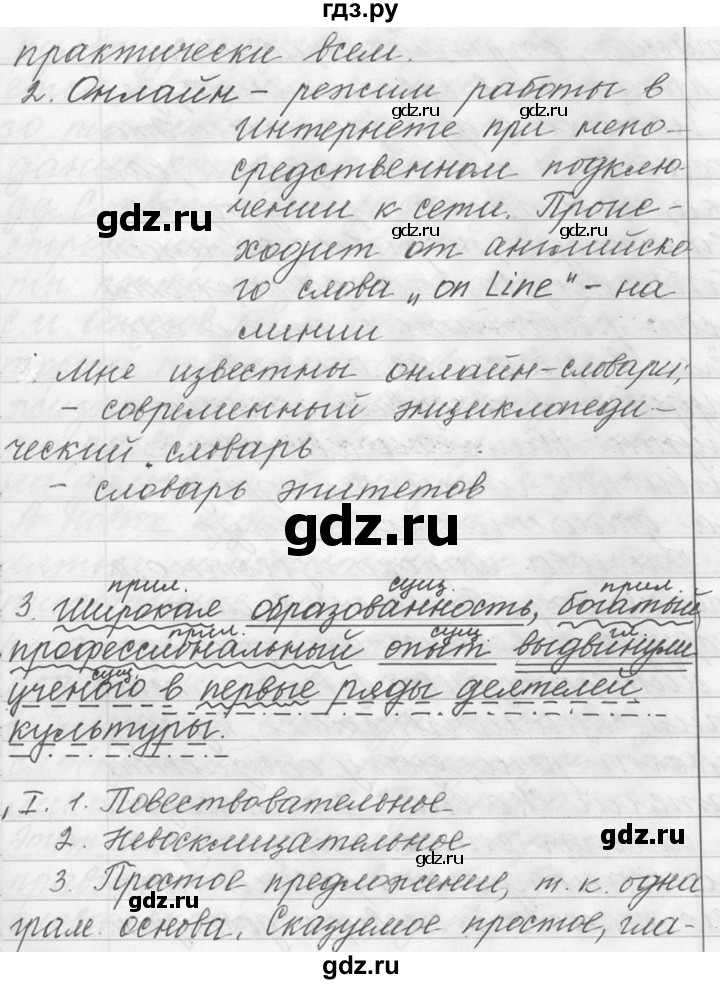 гдз.ру
практически всем.
2. Онлайн - режим работы в
gdz.ru
gdz.ru
Интернете при непо-
средственном подклю-
gdz.ru
чении к сети. Проис-
gdz.ru
gdz.ru
ходит от английско
го слова „on Line" - на
линии
3. Мне известны онлайн-словари:
- современный энциклопеди-
ческий словарь
- словарь эпитетов
gdz.ru
прил. сущ. прил.
3. Широкая образованность, богатый,
прил. сущ. гл.
профессиональный опыт выдвинули
сущ.
ученого в первые ряды деятелей
культуры.
I. 1. Повествовательное
2. Невосклицательное
gdz.ru
gdz.ru
3. Простое предложение, т. к. одна
gdz.ru
грам. основа. Сказуемое простое, гла-
gdz.ru